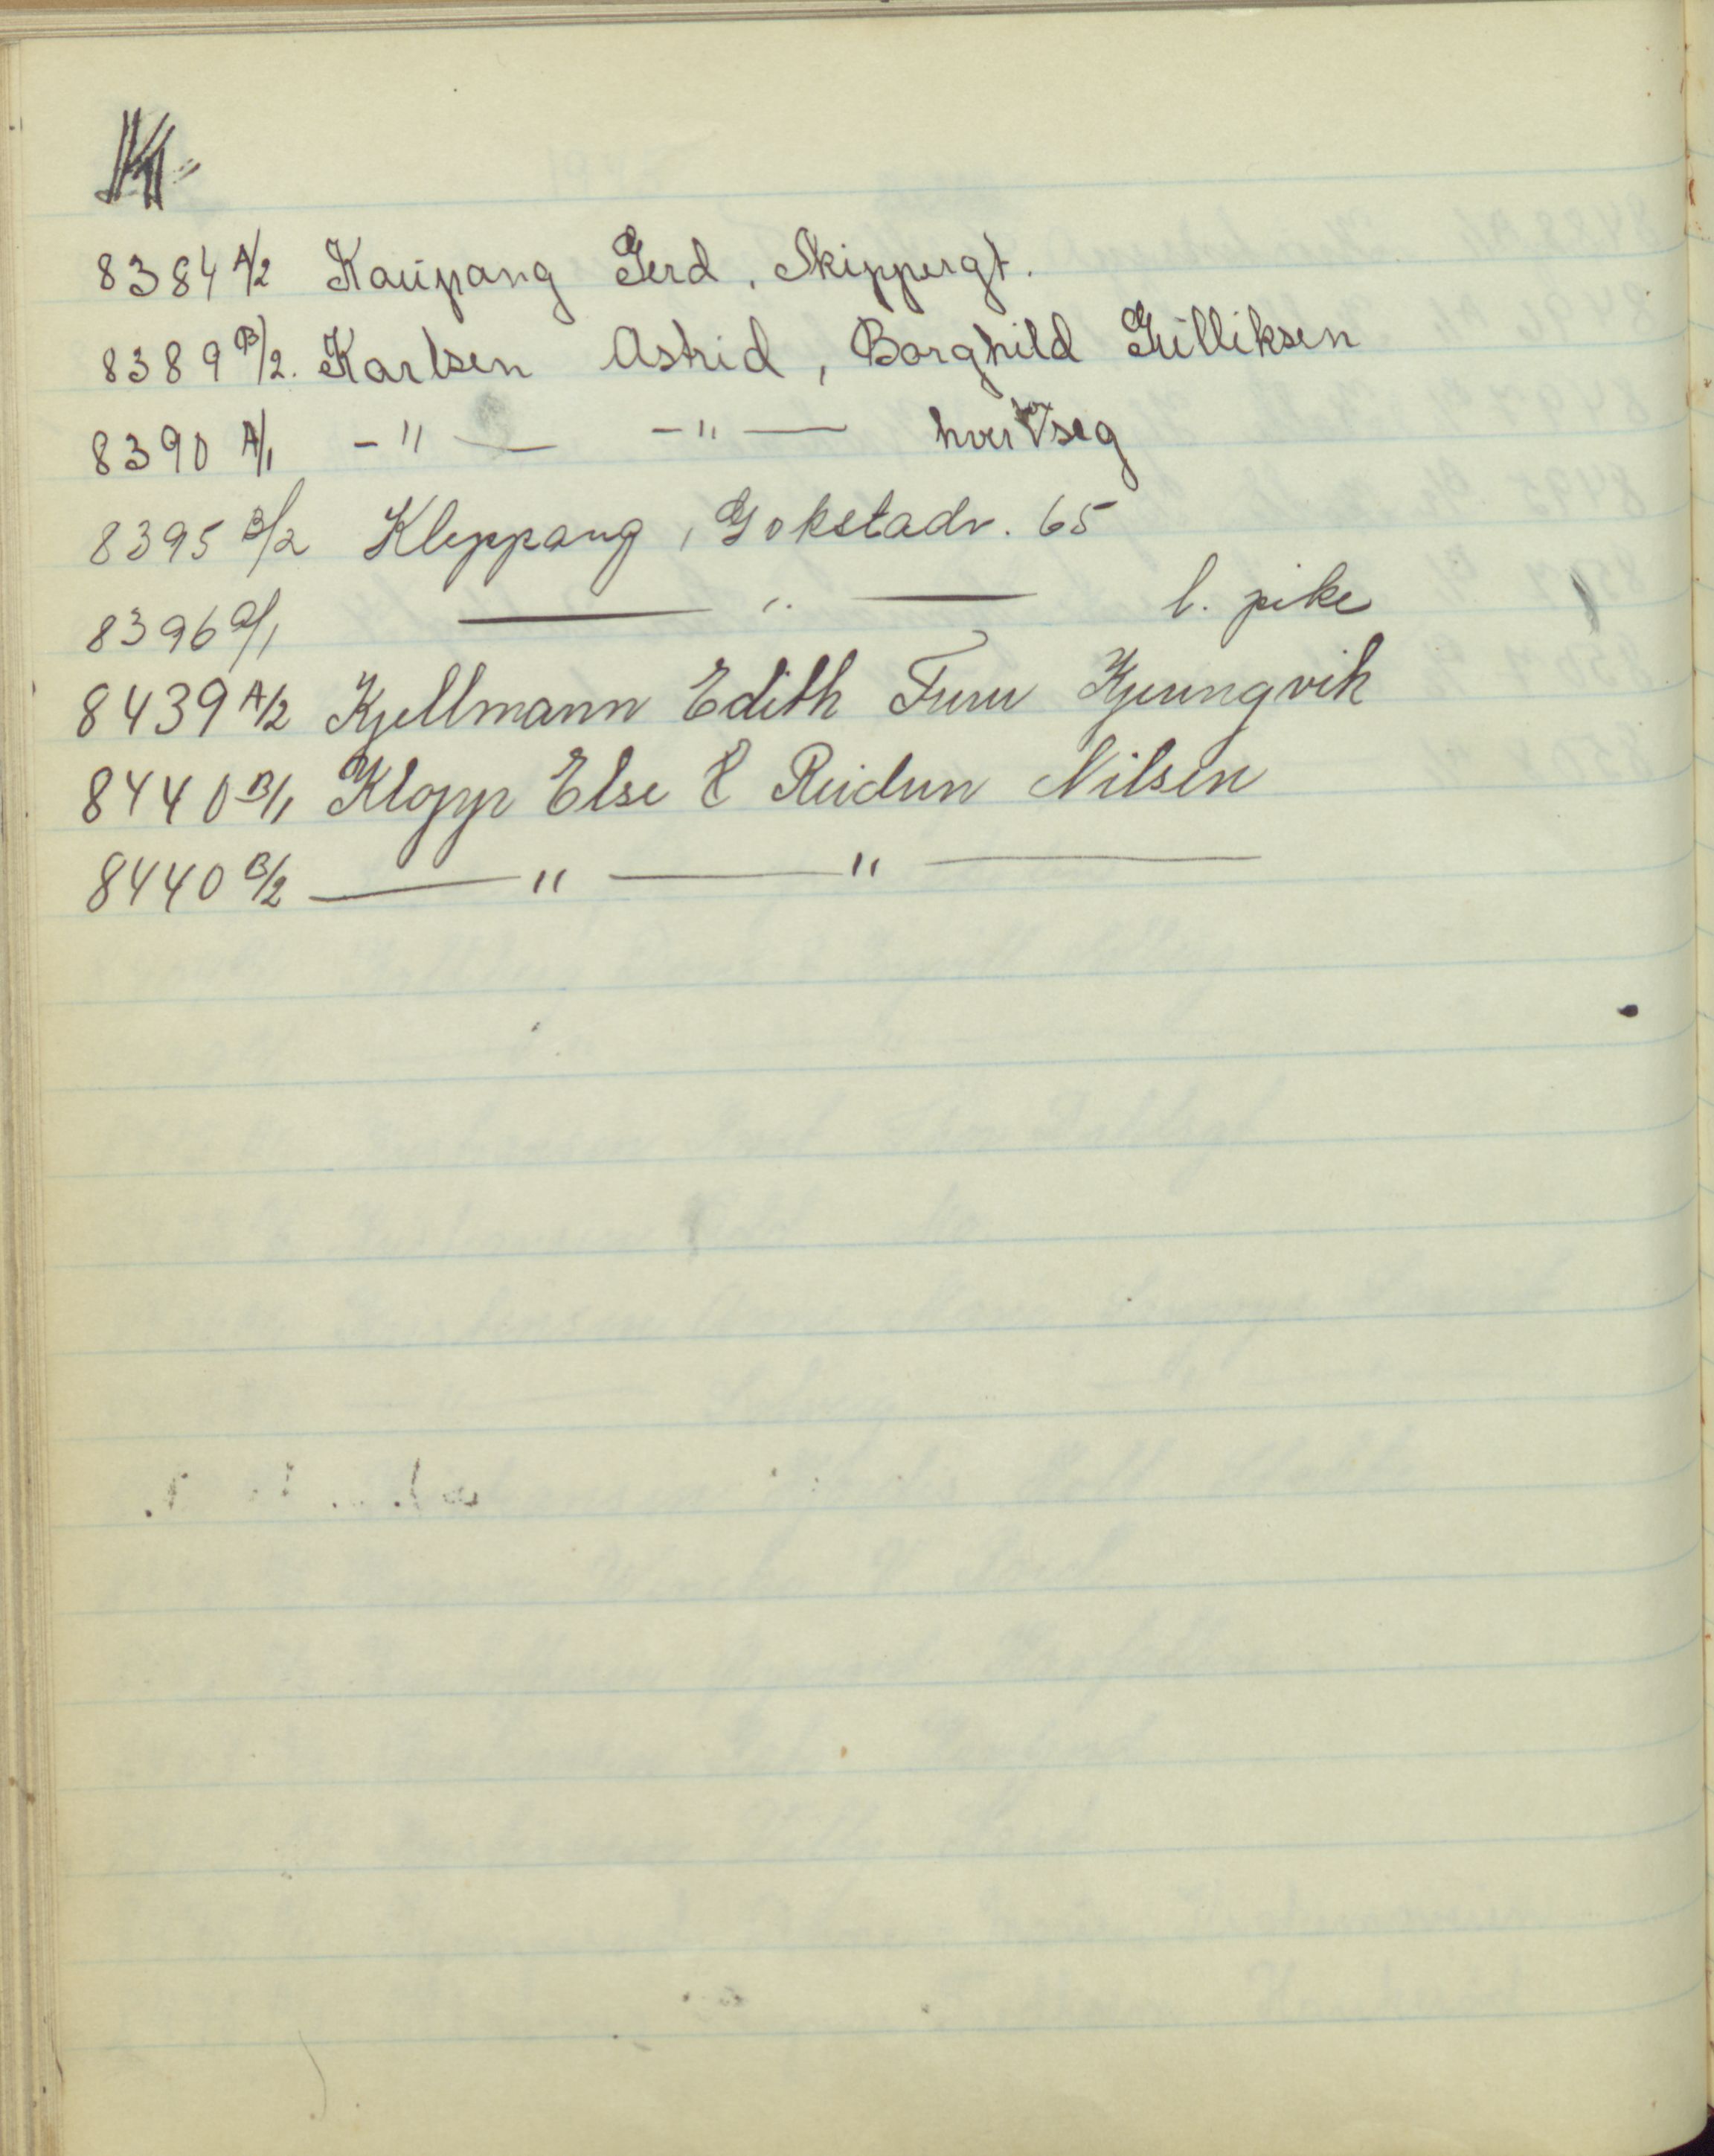 K
8384 A/2 Kaupang Gerd, Skippergt.
8389 B/2. Karlsen Astrid, Borghild Gulliksen
8390 A/1 -"- -"- hver for seg
8395 B/2 Kleppang, Gokstadv. 65
8396 a/1 — " — l. pike
8439 A/2 Kjellmann Edith Furu Kjerringvik
8440 B/1 Klopp Else & Reidun Nilsen
8440 B/2 — " — " —